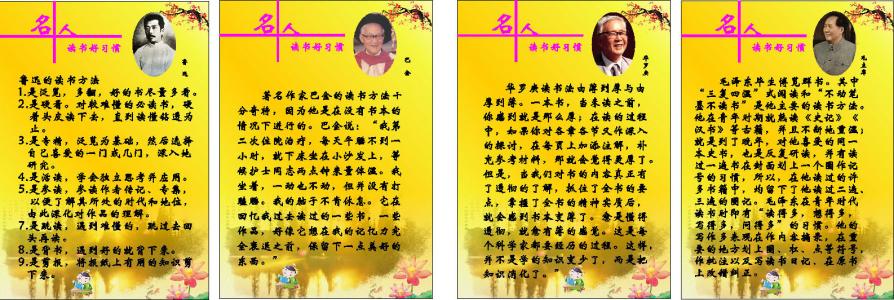 名人
读书好习惯
鲁迅
鲁迅的读书方法
1.是泛览,多翻,好的书尽量多看。
2.是硬看。对较难懂的必读书,硬
着头皮读下去,直到读懂钻透为
止。
3.是专精,泛览为基础,然后选择
自己喜爱的一门或几门,深入地
研究。
4.是活读,学会独立思考并应用。
5.是参读,参读作者传记、专集,
以便了解其所处的时代和地位,
由此深化对作品的理解。
7.是跳读,遇到难懂的,跳过去回
头再读。
8.是背书,遇到好的就背下来。
9.是剪报,将报纸上有用的知识剪
下来。
名人
读书好习惯
巴金
著名作家巴金的读书方法十
分奇特,因为他是在没有书本的
情况下进行的。巴金说:“我第
二次住院治疗,每天午睡不到一
小时,就下床坐在小沙发上,等
候护士同志两点钟来量体温。我
坐着,一动也不动,但并没有打
瞌睡。我的脑子不肯休息。它在
回忆我过去读过的一些书,一些
作品,好像它想在我的记忆力完
全衰退之前,保留下一点美好的
东西。”
名人
读书好习惯
华罗庚
华罗庚读书法由薄到厚与由
厚到薄。一本书,当未读之前,
你感到就是那么厚;在读的过程
中,如果你对各章各节又作深入
的探讨,在每页上加添注解,补
充参考材料,那就会觉得更厚了。
但是,当我们对书的内容真正有
了透彻的了解,抓住了全书的要
点,掌握了全书的精神实质后,
就会感到书本变薄了。愈是懂得
透彻,就愈有薄的感觉。这是每
个科学家都要经历的过程。这样,
并不是学的知识变少了,而是把
知识消化了。”
名人
读书好习惯
毛主席
毛泽东毕生博览群书。其中
“三复四温”式阅读和“不动笔
墨不读书”是他主要的读书方法。
他在青年对期就熟读《史记》《
汉书》等古籍,并且不断地重温;
就是到了晚年,对他喜爱的同一
本史书,也是反复研读,并有读
过一遍书在封面划上一个圈作记
号的习惯,所以,在他读过的许
多书籍中,均留下了他读过二遍、
三遍的圈记。毛泽东在青年时代
读书对即有“读得多,想得多,
写得多,问得多”的习惯。他的
写作多表现在作内容摘录,在重
要的地方划上圈、杠、点等符号,
作批注以及写读书日记、在原书
上改错纠正。